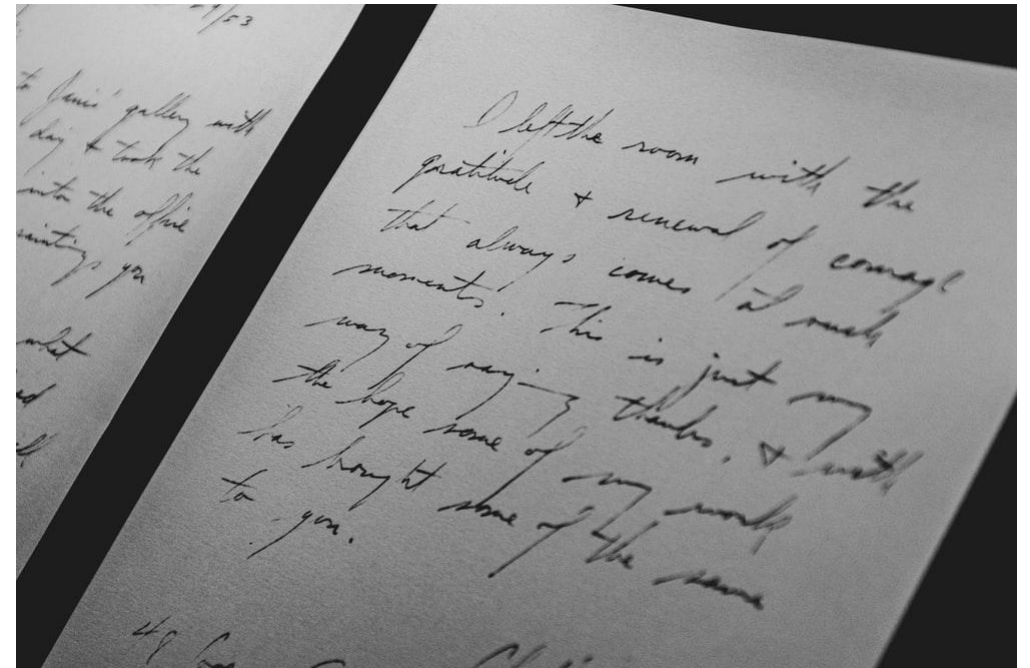 /53
to Janis' gallery with
day + took the
into the office
paintings you
what
ed
I left the room with the
gratitude + renewal of courage
that always comes at such
moments. This is just my
way of saying thanks, & with
the hope some of my work
has brought some of the same
to you.
48